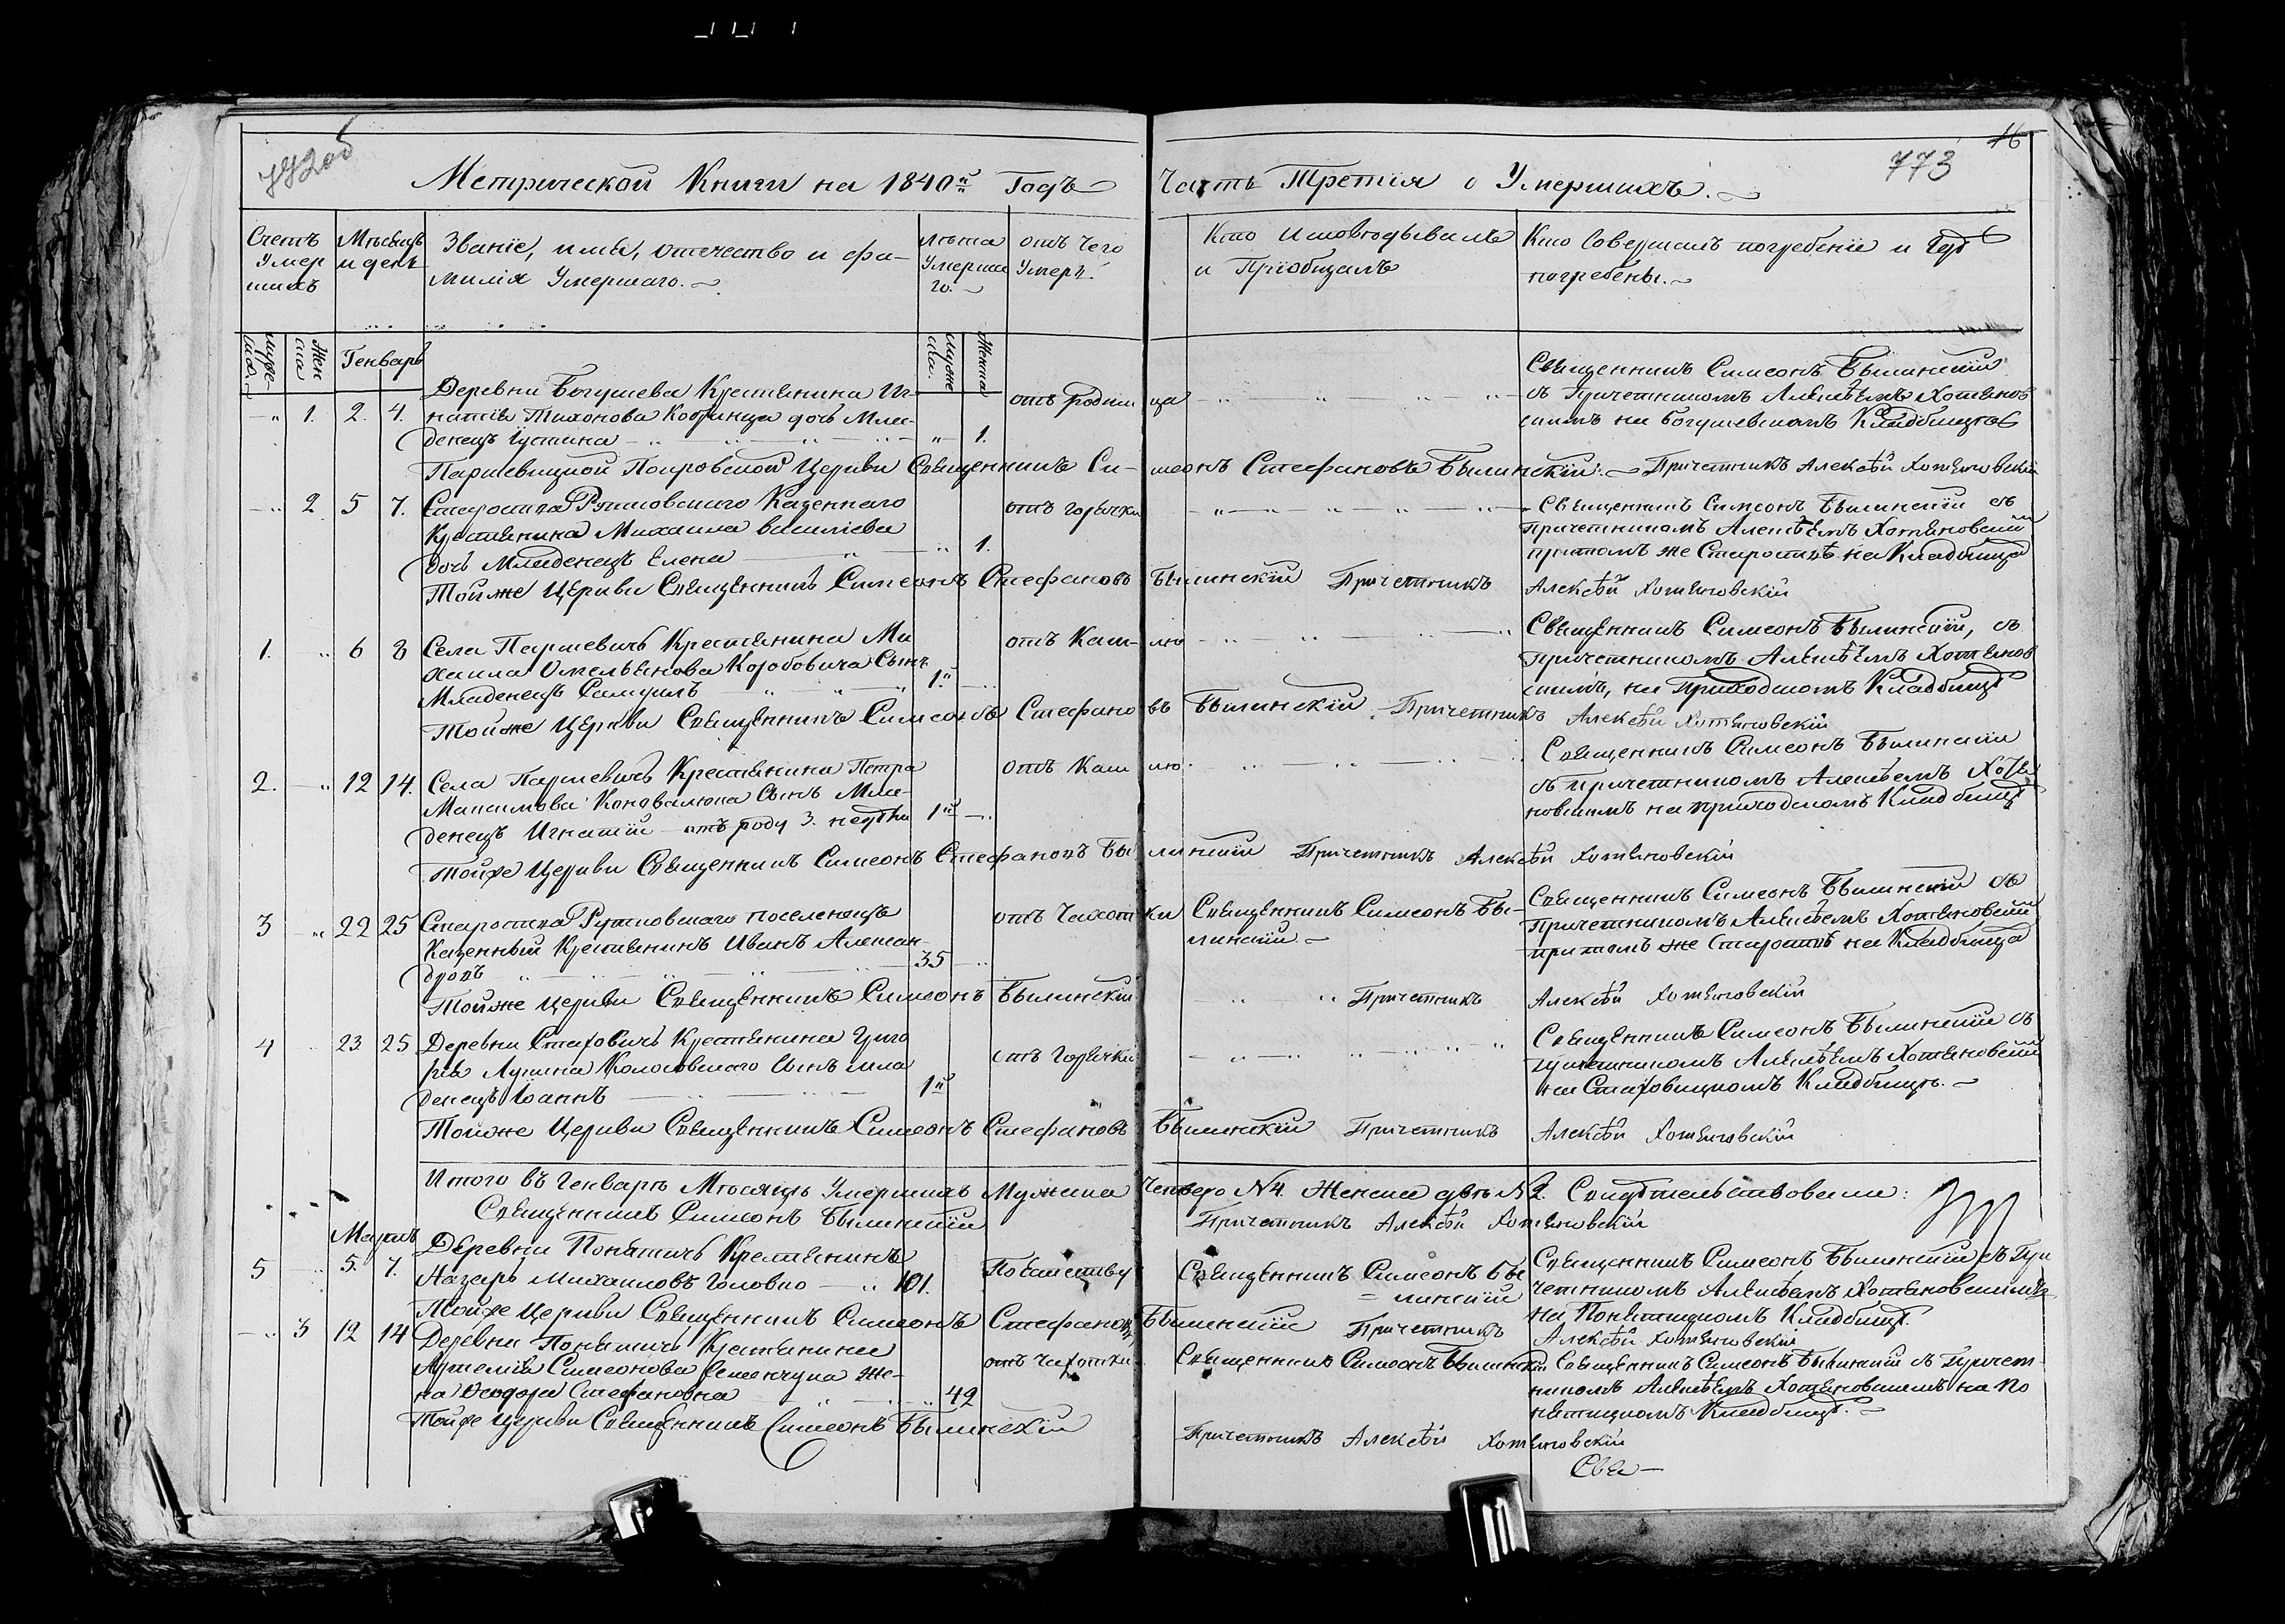 772об
16
773
Метрической Книги на 1840й Годъ Часть Третія о Умершихъ.
Счетъ Умершихъ
Мѣсяцъ и день
Званіе, имя, отечество и фа-
милія Умершаго.
Лѣта Умершаго.
отъ чего Умеръ.
Кто Исповѣдывалъ
и Пріобщалъ
Кто Совершалъ погребеніе и Гдѣ
погребены.
Генварь
Деревни Богушева Крестянина Иг-
натія Тихонова дочь Мла-
денецъ Іустина
1. 2. 4.
1.
отъ родимца
Священникъ Симеонъ Былинскій
съ Причетникомъ Алексѣемъ Хотянов
скимъ на Богушевскомъ Кладбищѣ
Паршевицкой Покровской Церкви Священникъ Симеонъ Стефановъ Былинскій. Причетникъ Алексѣй Хотяновскій
2 5 7. Староства Казеннаго
Крестянина Михаила Василіева
дочь Младенецъ Елена 1.
отъ горячки
Священникъ Симеонъ Былинскій съ
Причетникомъ Алексѣемъ Хотяновскимъ
притомъ же Староствѣ на Кладбища
Тойже Церкви Священникъ Симеонъ Стефановъ Былинскій Причетникъ Алексѣй Хотяновскій
1. 6 8 Села Паршевичъ Крестянина Ми
хаила Омельянова Коробовича Сынъ
Младенецъ Самуилъ 1.
отъ Кашлю
Священникъ Симеонъ Былинскій, съ
Причетникомъ Алексѣемъ Хотянов
скимъ, на Приходскомъ Кладбищѣ
Тойже Церкви Священникъ Симеонъ Стефановъ Былинскій Причетникъ Алексѣй Хотяновскій
2. 12 14. Села Паршевичъ Крестянина Петра
Максимова Коновалюка Сынъ Мла-
денецъ Игнатій отъ роду 3. недѣли 1й
отъ Кашлю
Священникъ Симеонъ Былинскій
съ Причетникомъ Алексѣемъ Хотя
новскимъ на приходскомъ Кладбищѣ
Тойже Церкви Священникъ Симеонъ Стефановъ Былинскій Причетникъ Алексѣй Хотяновскій
3 22 25 Староства поселенецъ
Казенный Крестянинъ Иванъ Алексан-
дровъ 35
отъ Чахотки
Священникъ Симеонъ Бы-
линскій
Священникъ Симеонъ Былинскій съ
Причетникомъ Алексѣемъ Хотяновскимъ
притомъ же Староствѣ на Кладбища
Тойже Церкви Священникъ Симеонъ Былинскій Причетникъ Алексѣй Хотяновскій
4 23. 25 Деревни Ставовичъ Крестянина Григо
рія Лукина Сынъ мла
денецъ Іоаннъ 1й
отъ Горячки
Священникъ Симеонъ Былинскій съ
причетникомъ Алексѣемъ Хотяновскимъ
на Кладбищѣ.
Тойже Церкви Священникъ Симеонъ Стефановъ Былинскій Причетникъ Алексѣй Хотяновскій
Итого въ Генварѣ Мѣсяцѣ Умершихъ Мужеска Четверо N 4. Женска двѣ N 2. Свидѣтельствовали:
Священникъ Симеонъ Былинскій Причетникъ Алексѣй Хотяновскій
Мартъ
5 5. 7. Деревни Понятичъ Крестянинъ
Назарь Михаиловъ Головко 101.
Священникъ Симеонъ Бы
линскій
Священникъ Симеонъ Былинскій съ При
четникомъ Алексѣемъ Хотяновскимъ
на Понятицкомъ Кладбищѣ.
Тойже Церкви Священникъ Симеонъ Стефановъ Былинскій Причетникъ Алексѣй Хотяновскій
3 12 14 Деревни Понятичъ Крестянина
Артемія Симеонова Семенчука Же-
на Ѳеодора Стефановна 42
отъ чахотки
Священникъ Симеонъ Былинскій
Священникъ Симеонъ Былинскій съ Причет-
никомъ Алексѣемъ Хотяновскимъ на По
нятицкомъ Кладбищѣ.
Тойже Церкви Священникъ Симеонъ Былинскій
Причетникъ Алексѣй Хотяновскій
Свя—